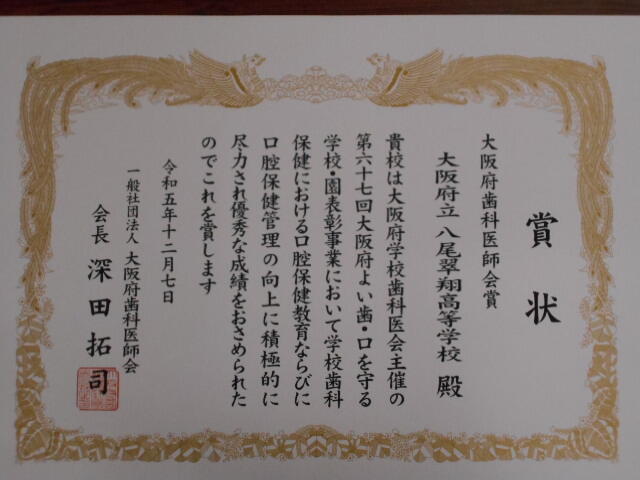 賞状
大阪府歯科医師会賞
大阪府立八尾翠翔高等学校 殿
貴校は大阪府学校歯科医会主催の
第六十七回大阪府よい歯・口を守る
学校・園表彰事業において学校歯科
保健における口腔保健教育ならびに
口腔保健管理の向上に積極的に
尽力され優秀な成績をおさめられた
のでこれを賞します
令和五年十二月七日
一般社団法人 大阪府歯科医師会
会長 深田拓司